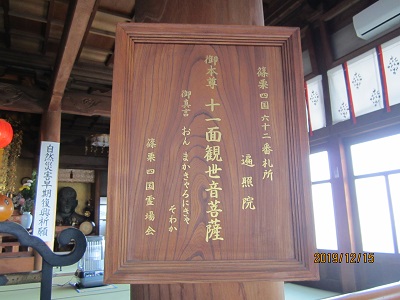 篠栗四国 六十二番札所
遍照院
御本尊 十一面観世音菩薩
御真言 おん まかきゃろにきゃ
そわか
篠栗四国霊場会
自然災害早期復興祈願
2019/12/15